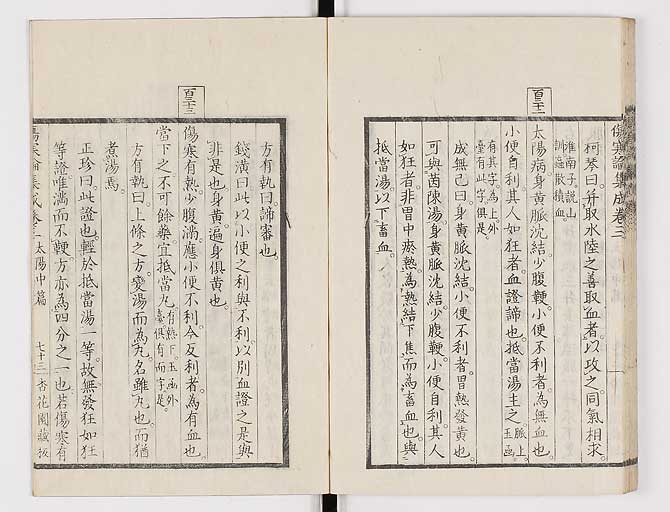 百三十二
傷寒論集成卷三
柯琴曰。并取水陸之善取血者。以攻之。同氣相求
淮南子說山
訓䖟散積血。
太陽病。身黃脈沈結。少腹鞕。小便不利者。為無血也。
小便自利。其人如狂者。血證諦也。抵當湯主之。脈上。玉函
有其字。為上。外
臺有此字。俱是。
成無己曰。身黃脈沈結。小便不利者。胃熱發黃也。
可與茵陳湯。身黃脈沈結。少腹鞕。小便自利。其人
如狂者。非胃中瘀熱。為熱結下焦。而為畜血也。與
抵當湯。以下畜血。
百三十三
方有執曰。諦審也。
錢潢曰。此以小便之利與不利。以別血證之是與
非是也。身黃遍身俱黃也。
傷寒有熱。少腹滿。應小便不利。今反利者。為有血也。
當下之。不可餘藥。宜抵當丸。有熱下。玉函外
臺俱有而字。是。
方有執曰。上條之方。變湯而為丸。名雖丸也。而猶
煮湯焉。
正珍曰。此證也輕於抵當湯一等。故無發狂如狂
等證。唯滿而不鞕。方亦為四分之一也。若傷寒有
傷寒論集成卷三 太陽中篇 七十三 杏花園藏板